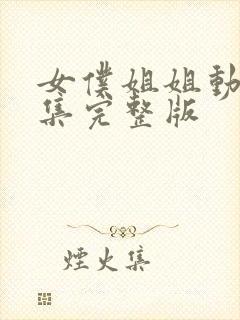 女僕姐姐動
集完整版
煙火集